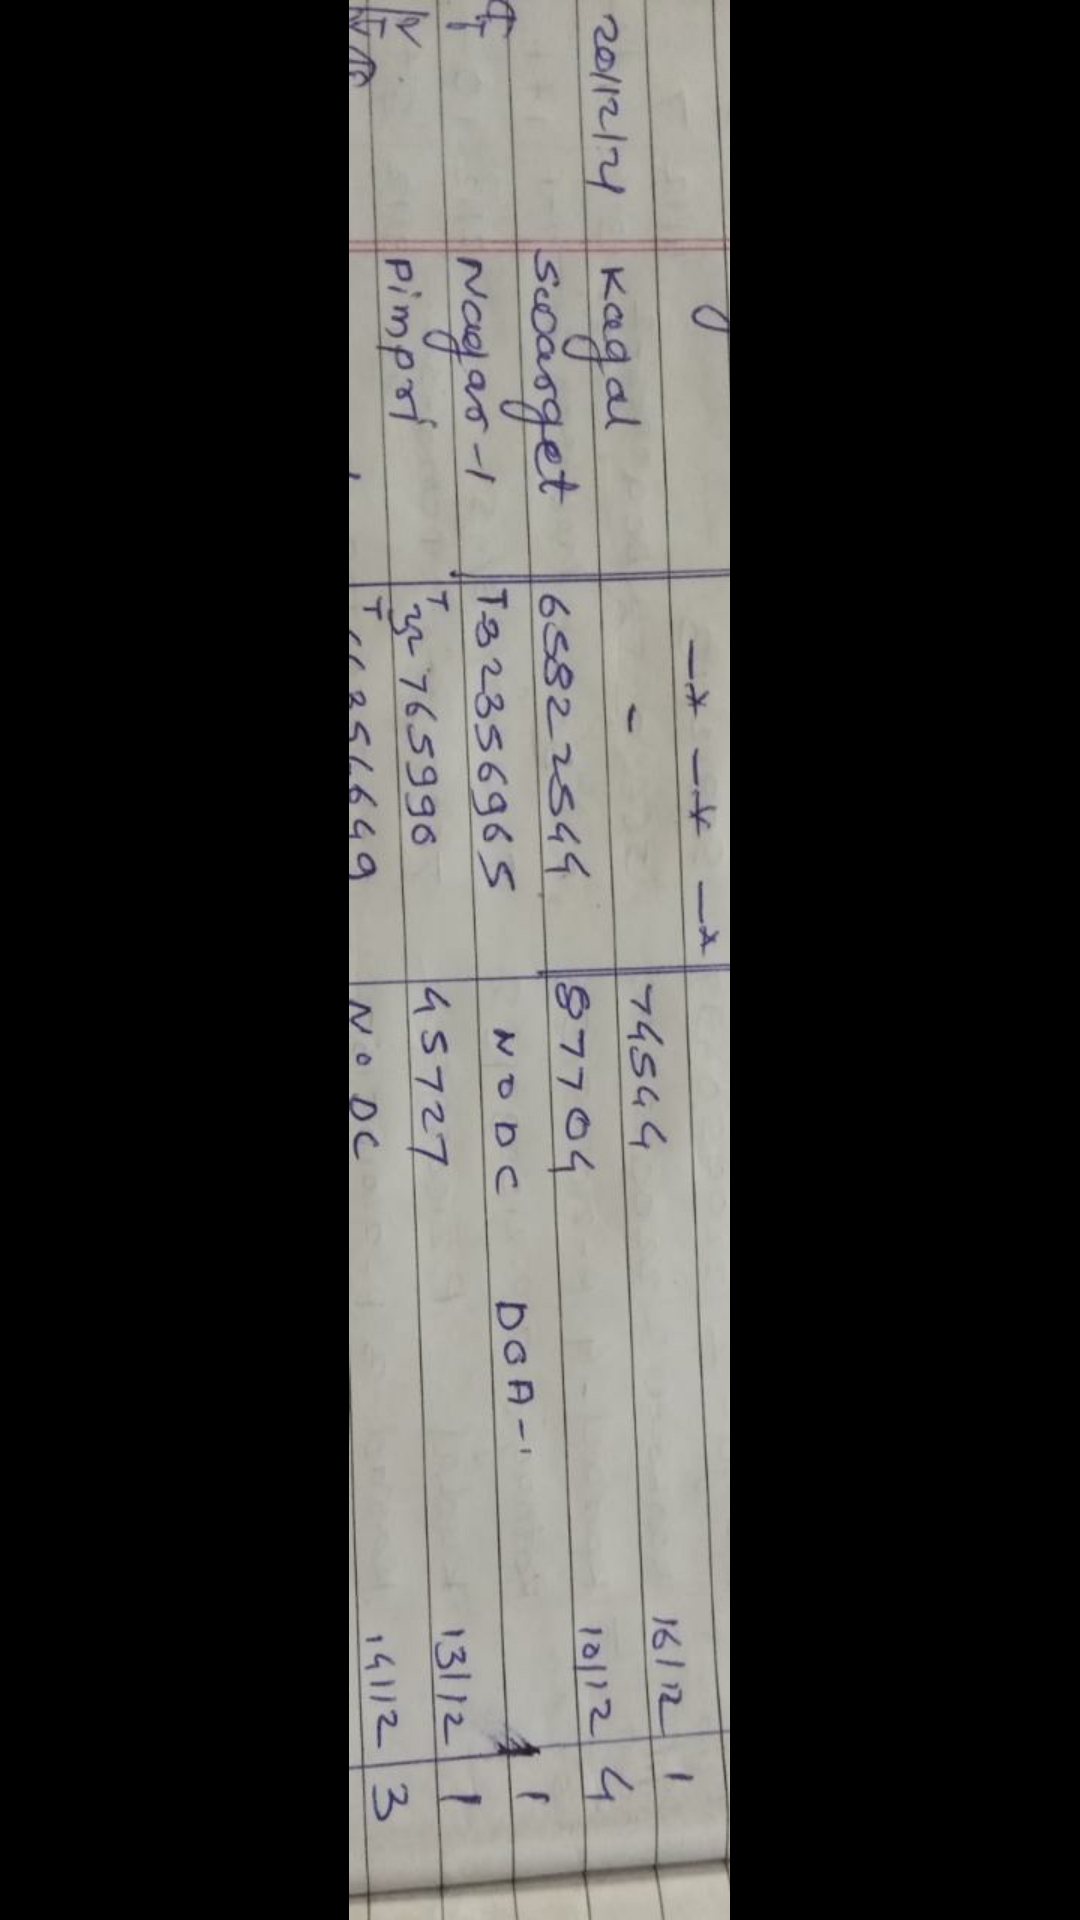 — * — * — *
20/12/21 Kagal - 74544 16/12 1
Swarget 65822544 87704 10/12 4
Nagar-1 T-82356965 NO DC DOA-1 1
Pimpri T 765996 45727 13/12 1
T NO DC 14/12 3